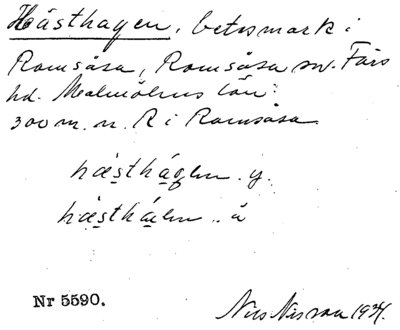 Hästhagen, betesmark i
Ramsåsa, Ramsåsa sn. Färs
hd. Malmöhus län.
300 m. n. R i Ramsåsa
hæ̀sthágen .y.
hæ̀sthàen .. ä
Nr 5590.
Nils Nilsson 1934.